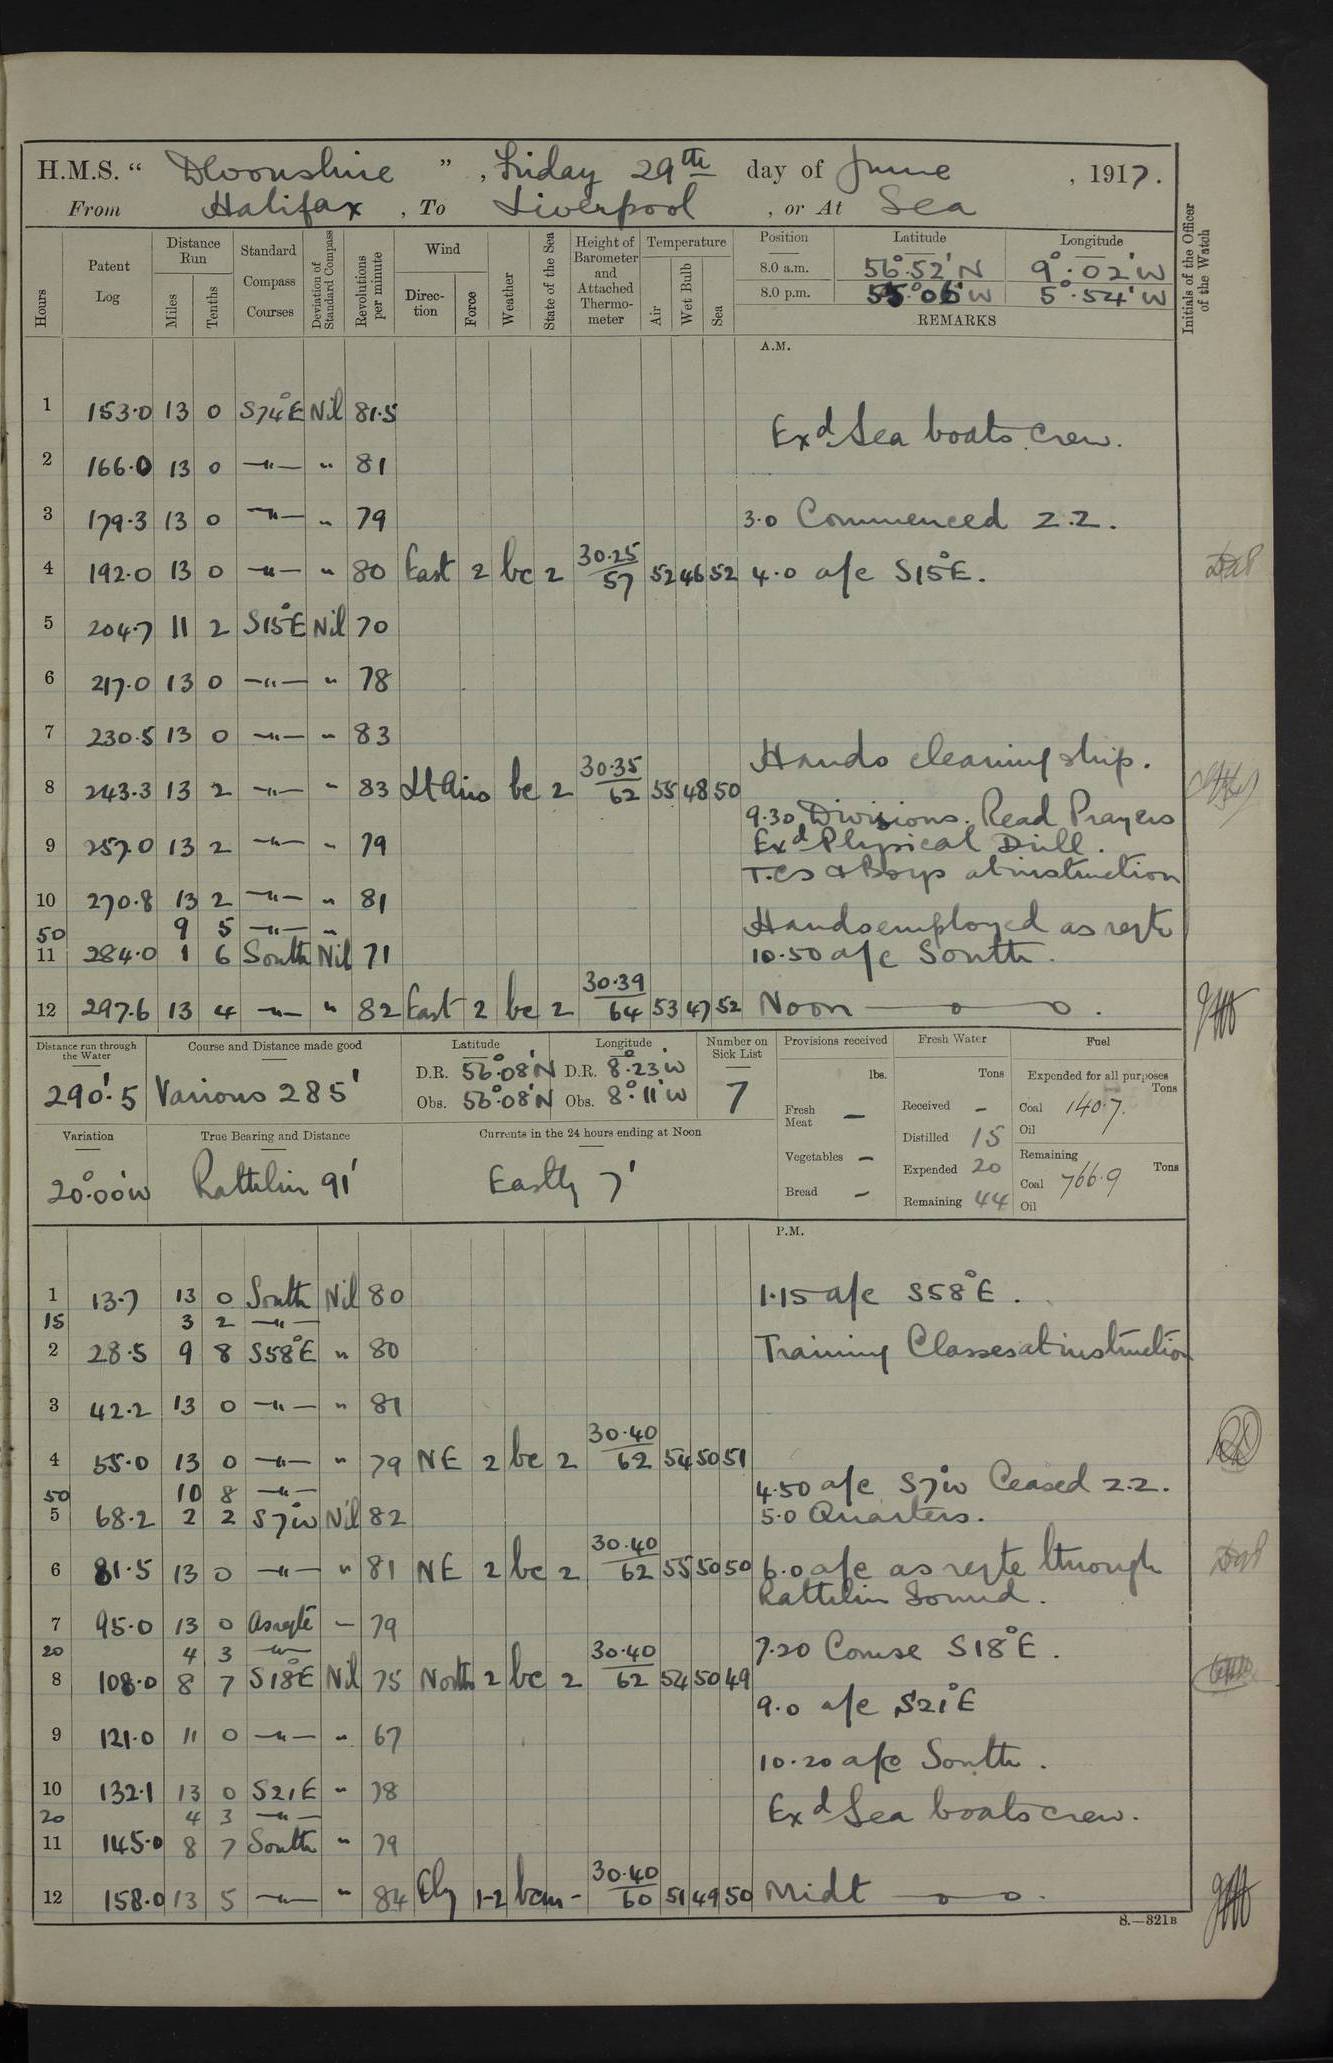 H.M.S. “ Devonshire ”, Friday 29th day of June, 1917.
From Halifax, To Liverpool, or At Sea
Hours
Patent Log
Distance Run
Miles
Tenths
Standard Compass Courses
Deviation of Standard Compass
Revolutions per minute
Wind
Direction
Force
Weather
State of the Sea
Height of Barometer and Attached Thermometer
Temperature
Air
Wet Bulb
Sea
Position
Latitude
Longitude
Initials of the Officer of the Watch
8.0 a.m. 56°·52'N 9°·02'W
8.0 p.m. 55°·06'W 5°·54'W
REMARKS
A.M.
1 153·0 13 0 S74°E Nil 81·5
Exd Sea boats crew.
2 166·0 13 0 —"— " 81
3 179·3 13 0 —"— " 79 3·0 Commenced Z.Z.
4 192·0 13 0 —"— " 80 East 2 bc 2 30·25/57 52 46 52 4·0 a/c S15°E.
5 204·7 11 2 S15°E Nil 70
6 217·0 13 0 —"— " 78
7 230·5 13 0 —"— " 83
Hands cleaning ship.
8 243·3 13 2 —"— " 83 Lt Airs bc 2 30·35/62 55 48 50
9·30 Divisions. Read Prayers
9 257·0 13 2 —"— " 79 Exd Physical Drill.
T.Cs & Boys at instruction
10 270·8 13 2 —"— " 81
50 9 5 —"— " Hands employed as reqte
11 284·0 1 6 South Nil 71 10·50 a/c South.
12 297·6 13 4 —"— " 82 East 2 bc 2 30·39/64 53 47 52 Noon —o—o.
Distance run through the Water
290'·5
Course and Distance made good
Various 285'
Latitude
D.R. 56°·08'N
Obs. 56°·08'N
Longitude
D.R. 8°·23'W
Obs. 8°·11'W
Number on Sick List
7
Provisions received
lbs.
Fresh Meat —
Vegetables —
Bread —
Fresh Water
Tons
Received –
Distilled 15
Expended 20
Remaining 44
Fuel
Expended for all purposes
Tons
Coal 140·7.
Oil
Remaining
Tons
Coal 766·9
Oil
Variation
20°·00'W
True Bearing and Distance
Rathlin 91'
Currents in the 24 hours ending at Noon
Eastly 7'
P.M.
1 13·7 13 0 South Nil 80 1·15 a/c S58°E.
15 3 2 —"—
2 28·5 9 8 S58°E " 80 Training Classes at instruction
3 42·2 13 0 —"— " 81
4 55·0 13 0 —"— " 79 NE 2 bc 2 30·40/62 54 50 51
50 10 8 —"— 4·50 a/c S7°W Ceased Z.Z.
5 68·2 2 2 S7°W Nil 82 5·0 Quarters.
6 81·5 13 0 —"— " 81 NE 2 bc 2 30·40/62 55 50 50 6·0 a/c as reqte through
Rathlin Sound.
7 95·0 13 0 As reqte — 79
20 4 3 —"— 7·20 Course S18°E.
8 108·0 8 7 S18°E Nil 75 North 2 bc 2 30·40/62 54 50 49
9·0 a/c S21°E
9 121·0 11 0 —"— " 67
10·20 a/c South.
10 132·1 13 0 S21E " 78
20 4 3 —"— Exd Sea boats crew.
11 145·0 8 7 South " 79
12 158·0 13 5 —"— " 84 Ely 1-2 bcm - 30·40/60 51 49 50 Midt —o—o.
8.—321B